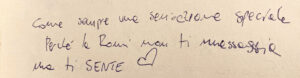 Come sempre una sensazione speciale
Perché la Romi non ti massaggia
ma ti SENTE